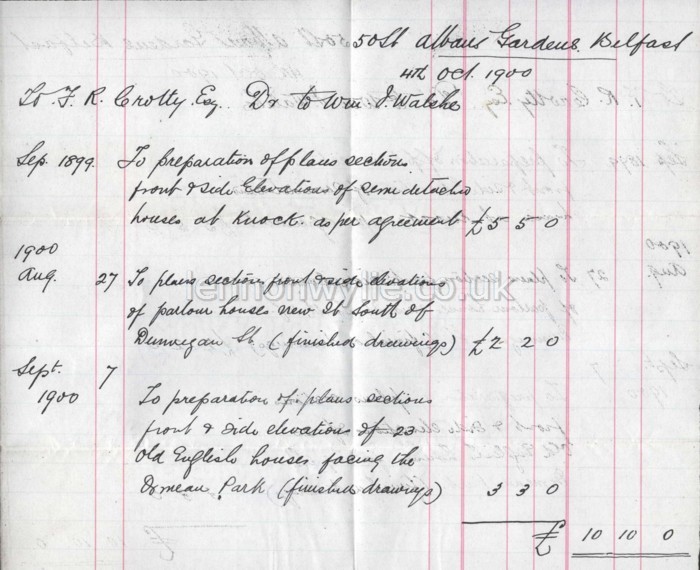 50 St Albans Gardens. Belfast
4th Oct. 1900
To F. R. Crotty Esq. Dr to Wm J. Walshe
Sep. 1899. To preparation of plans section
front & side Elevations of semi detached
houses at Knock. as per agreement £5 5 0
1900
Aug. 27 To plans section front & side elevations
of parlour houses new St South of
Dunvegan St. (finished drawings) £2 2 0
Sept. 7
1900 To preparation of plans sections
front & side elevations of 23
Old English houses facing the
Ormeau Park (finished drawings) 3 3 0
£ 10 10 0
lennonwylie.co.uk